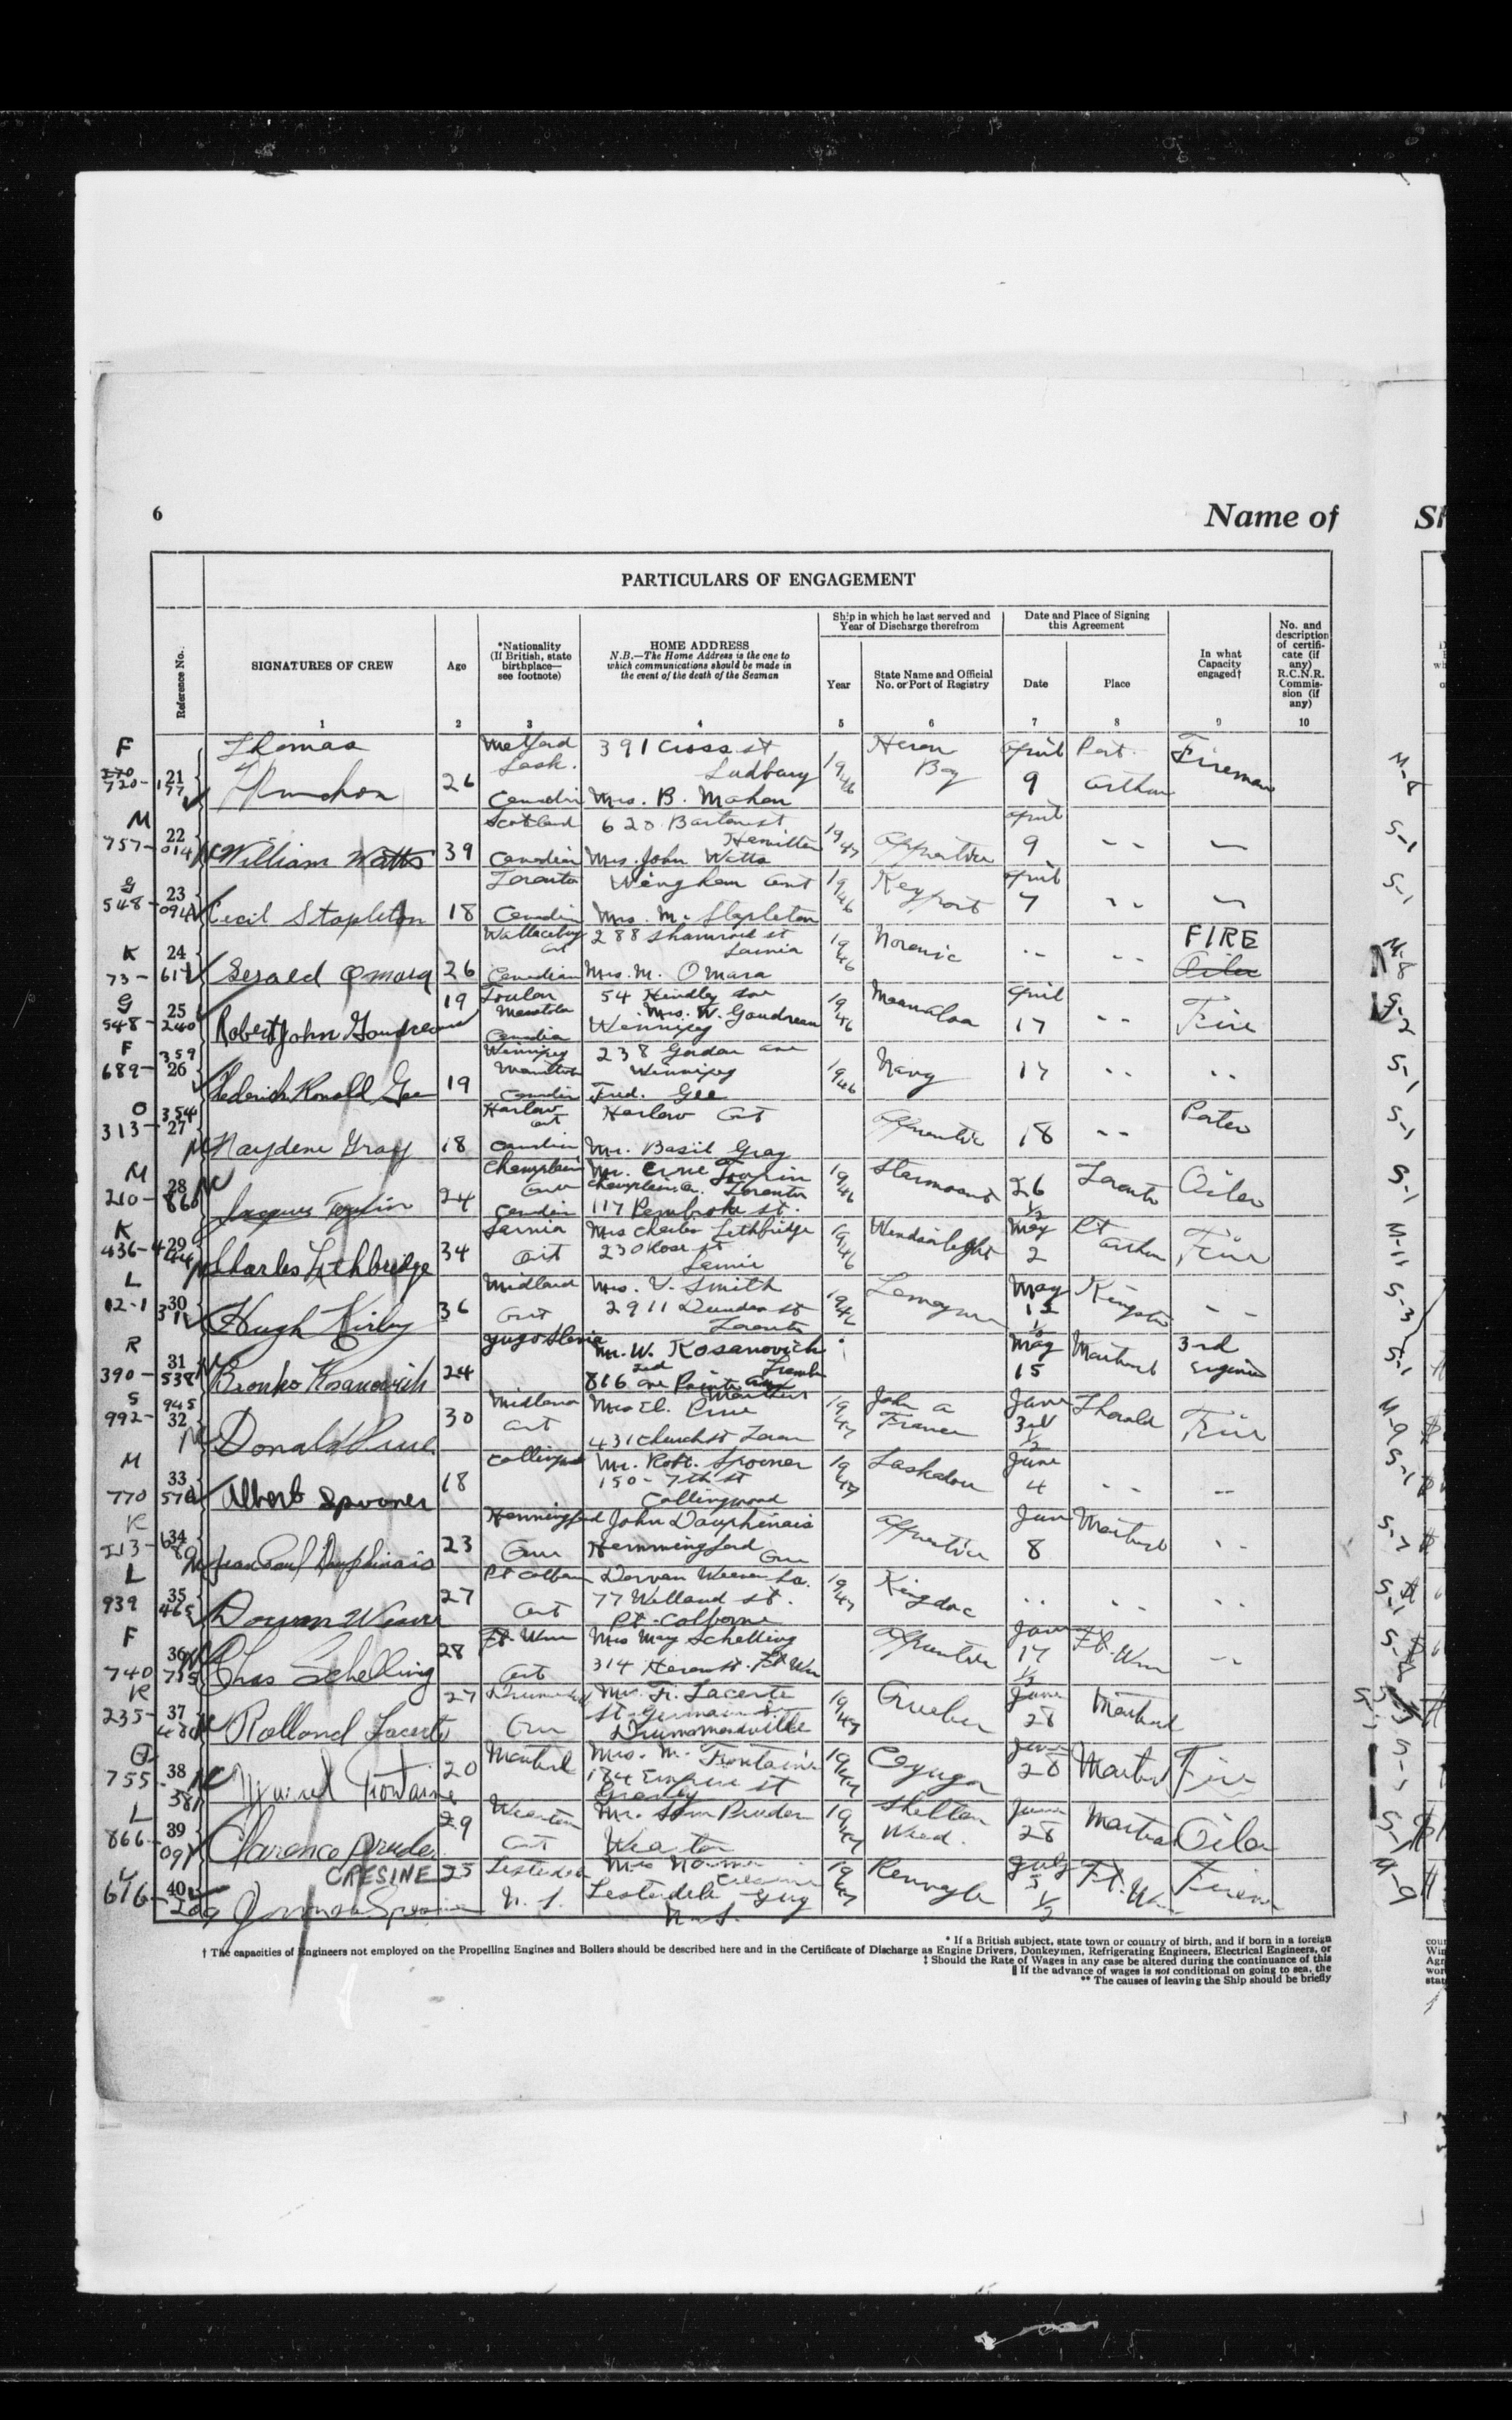 6
Name of
PARTICULARS OF ENGAGEMENT
Reference No.
SIGNATURES OF CREW
Age
*Nationality
(If British, state
birthplace—
see footnote)
HOME ADDRESS
N.B.—The Home Address is the one to
which communications should be made in
the event of the death of the Seaman
Ship in which he last served and
Year of Discharge therefrom
Year
State Name and Official
No. or Port of Registry
Date and Place of Signing
this Agreement
Date
Place
In what
Capacity
engaged†
No. and
description
of certifi-
cate (if
any)
R.C.N.R.
Commis-
sion (if
any)
1 2 3 4 5 6 7 8 9 10
F
720- 21 177
Thomas
26
Canadian
391 Cross st
Sudbury
Mrs. B. Mahon
1946
Heron
Bay
April
9
Port
Arthur
Fireman
M
757- 22 014
William Watts
39
Scotland
Canadian
620 Barton st
Hamilton
Mrs. John Watts
1947
April
9
548- 23 094
Cecil Stapleton
18
Toronto
Canadian
Wingham Ont
Mrs. M. Stapleton
1946
Keyport
April
7
K
73- 24 617
Gerald Omara
26
Wallaceburg
Ont
Canadian
288 Shamrock st
Sarnia
Mrs. M. Omara
1946
Noronic
FIRE
Oiler
G
548- 25 240
Robert John Goudreau
19
54 Hindley Ave
Mrs. W. Goudreau
Winnipeg
1946
Manaloa
April
17
Fire
F
689- 359 26
Frederick Ronald Gee
19
Winnipeg
Manitoba
Canadian
238 Gordon ave
Winnipeg
Fred. Gee
1946
Navy
17
O
313- 354 27
Naydene Gray
18
Harlow
Ont
Canadian
Harlow Ont
Mr. Basil Gray
Apprentice
18
Porter
M
210- 28 860
Jacques Toupin
24
Champlain
Que
Canadian
Mr. Erne Toupin
Toronto
117 Pembroke st.
1946
Starmount
26
Toronto
Oiler
K
436- 29
Charles Lethbridge
34
Sarnia
Ont
Mrs Charles Lethbridge
230 Rose st
Sarnia
1946
May
2
Pt
Arthur
Fire
L
12-1 30 311
Hugh Kirby
36
Midland
Ont
Mrs. V. Smith
2911 Dundas st
Toronto
1946
Lemoyne
May
12
Kingston
R
390- 31 538
Bronko Kosanovich
24
Yugoslavia
Mr. W. Kosanovich
816
May
15
Montreal
3rd
Engineer
S
992- 945 32
Donald Prue
30
Midland
Ont
431 Church st Toron
1947
John A
France
June
3rd
Thorold
Fire
M
770 33 570
Albert Spooner
18
Collingwood
Mr. Robt. Spooner
150 - 7th st
Collingwood
1947
Saskadoc
June
4
K
213- 34
Jean Paul Dauphinais
23
Hemmingford
Que
John Dauphinais
Hemmingford
Que
Apprentice
June
8
Montreal
L
939 35 465
Dorvan Weaver
27
Pt Colborne
Ont
Dorvan Weaver Sr.
77 Welland st.
Pt. Colborne
1947
Kingdoc
F
740 36 735
Chas Schelling
28
Ft. Wm
Ont
Mrs May Schelling
314 Heron st. Ft Wm
Apprentice
June
17
Ft. Wm
K
235- 37 480
Rolland Lacerte
27
Que
Mr. Fr. Lacerte
St. Germain
Drummondville
1947
June
28
Montreal
755- 38 381
Fontaine
20
Montreal
Mrs. M. Fontaine
184 Empire st
Granby
1947
Cayuga
June
28
Montreal
Fire
L
866- 39 091
Clarence Pruder
29
Wiarton
Ont
Mr. Sam Pruder
Wiarton
1947
Shelton
Weed.
June
28
Montreal
Oiler
616- 40 209
CRESINE
25
N.S.
Mrs Norman
Cresine
N.S.
1947
July
5
Ft. Wm
Firem
* If a British subject, state town or country of birth, and if born in a foreign
† The capacities of Engineers not employed on the Propelling Engines and Boilers should be described here and in the Certificate of Discharge as Engine Drivers, Donkeymen, Refrigerating Engineers, Electrical Engineers, or
‡ Should the Rate of Wages in any case be altered during the continuance of this
‖ If the advance of wages is not conditional on going to sea, the
** The causes of leaving the Ship should be briefly